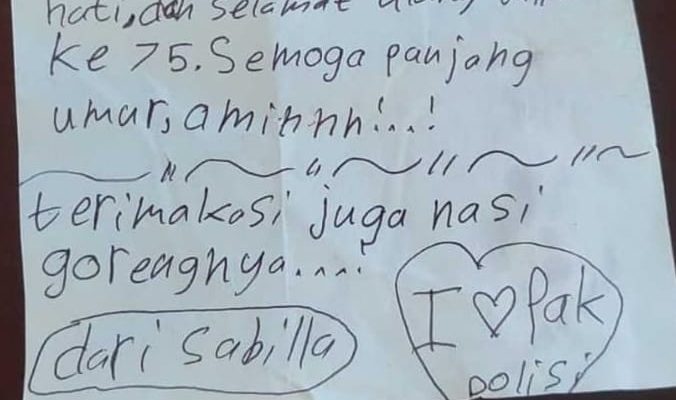 hati, dan selamat
ke 75. Semoga panjang
umur, aminnn!..!
terimakasi juga nasi
goreagnya....!
dari Sabilla
I ♡ Pak
polisi